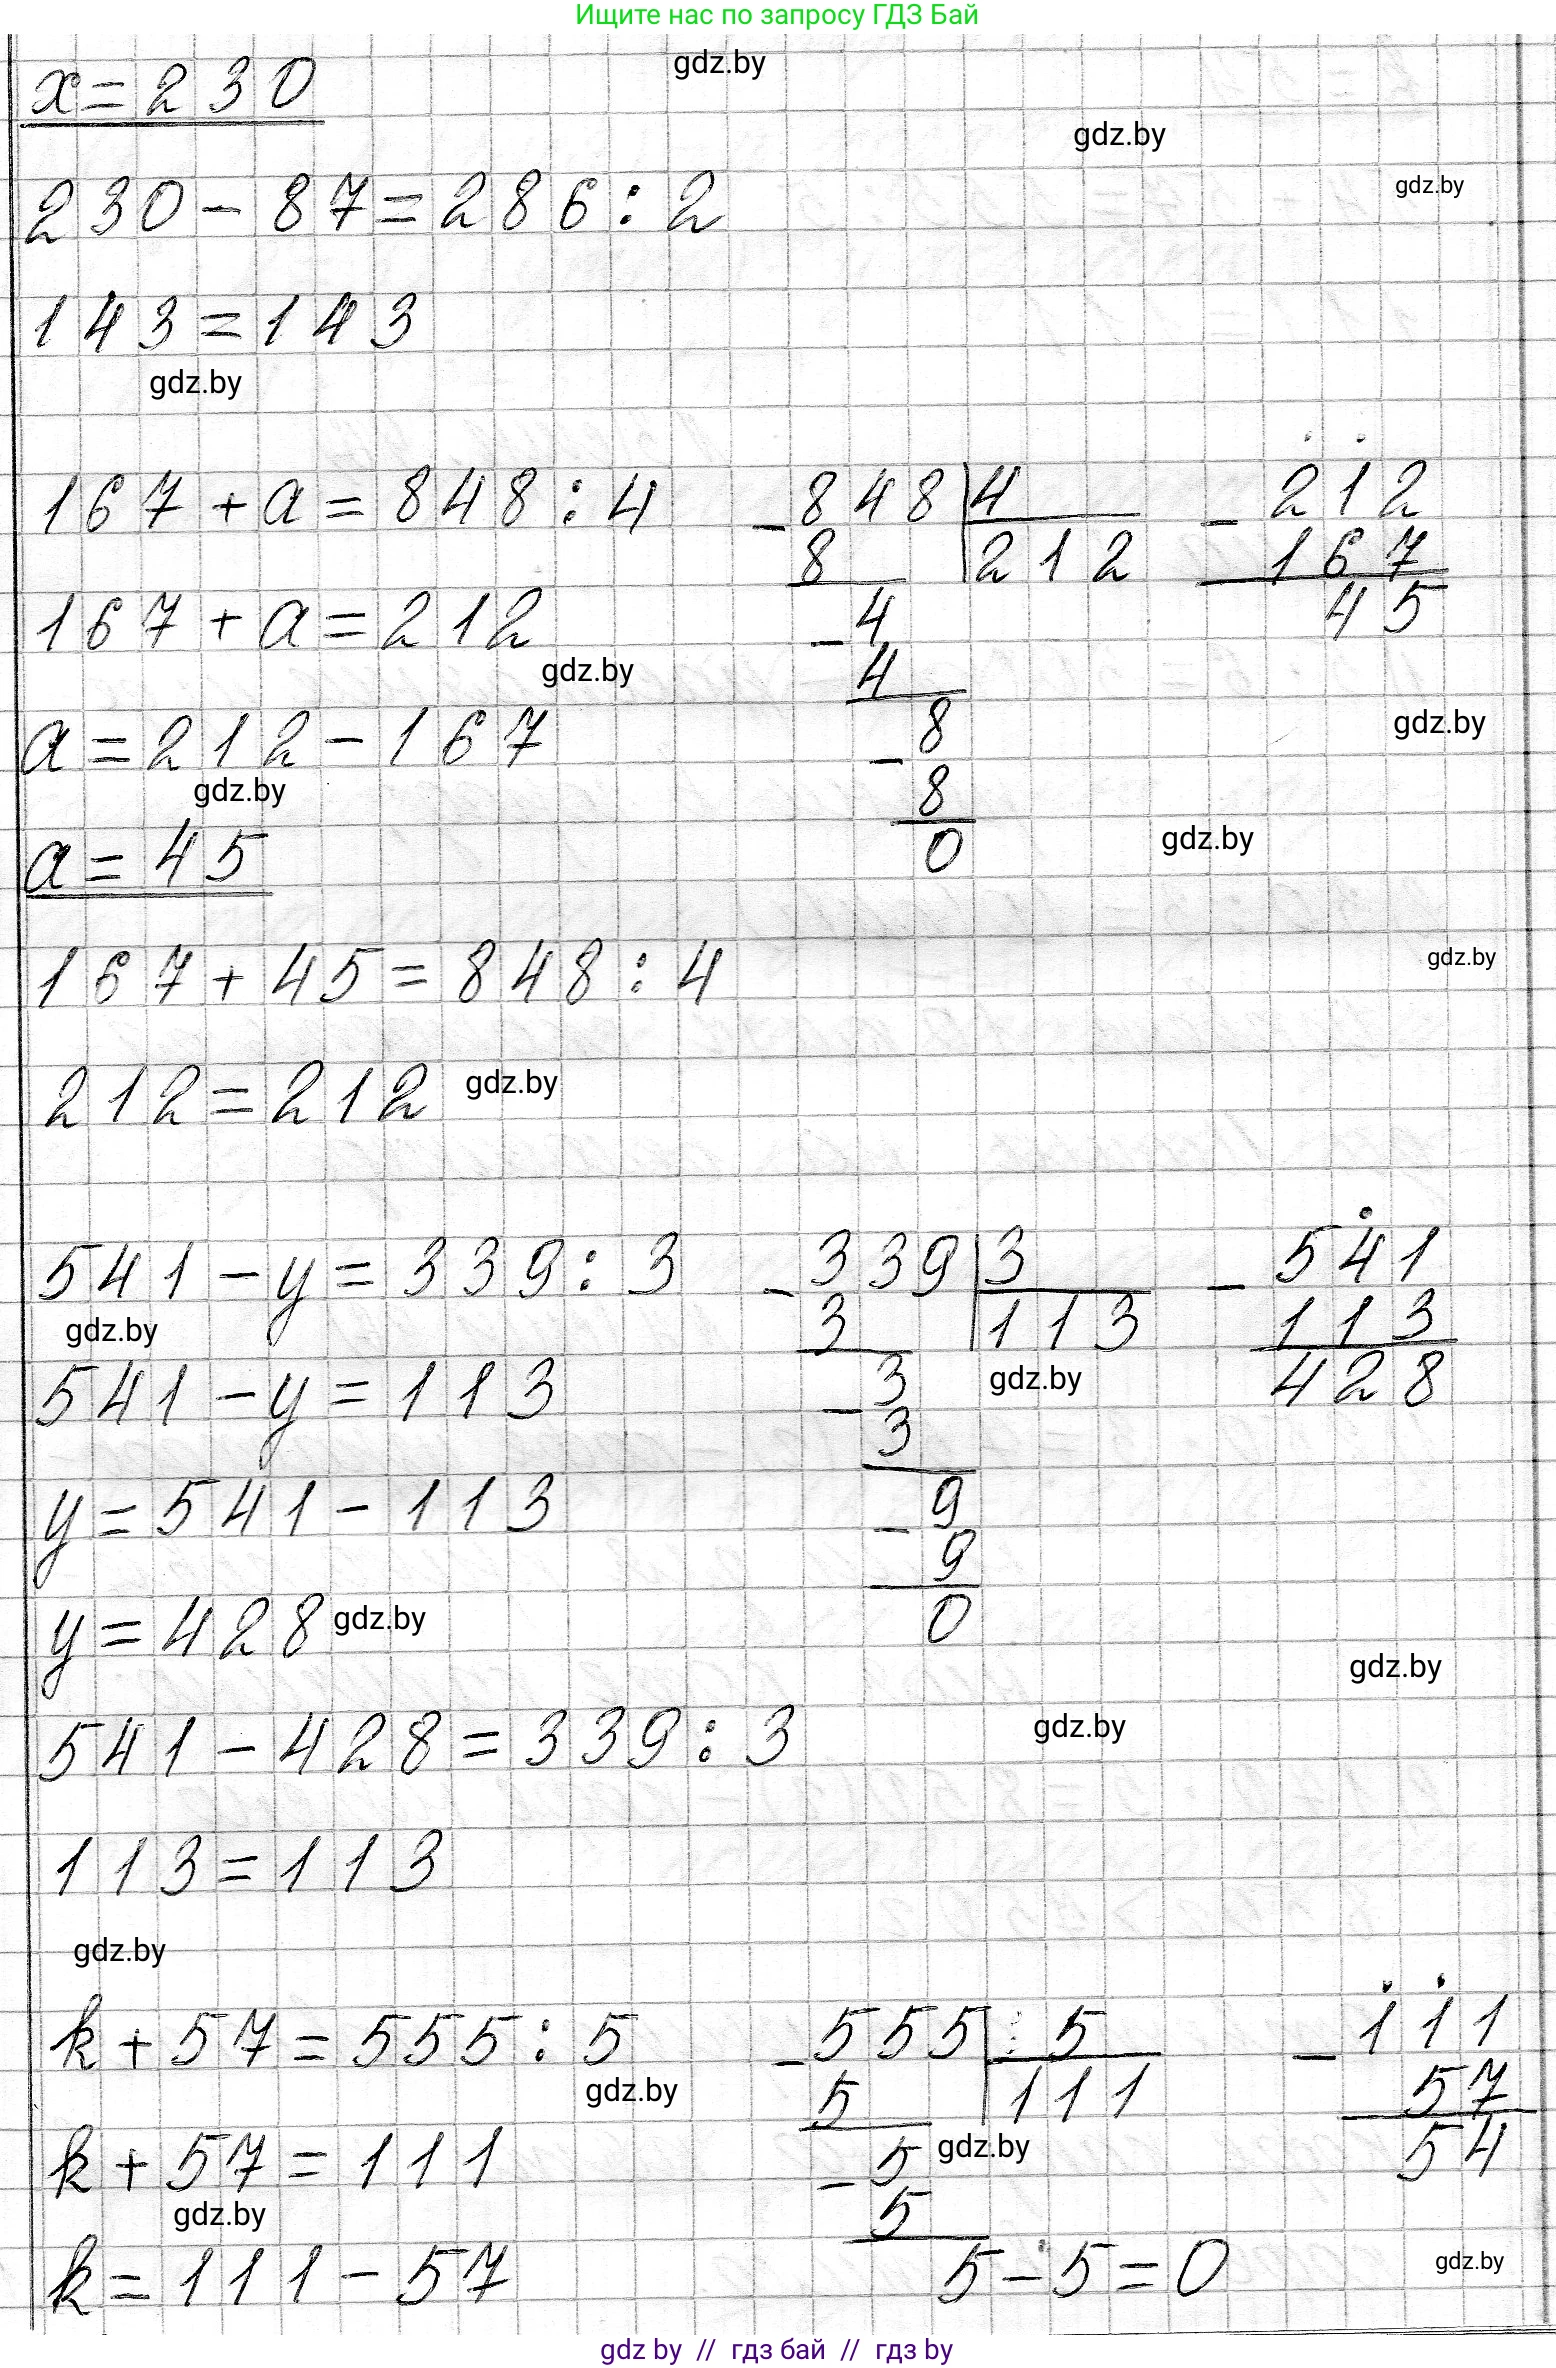 Ищите нас по запросу ГДЗ Бай
gdz.by
x=230
gdz.by
gdz.by
230-87=286:2
143=143
gdz.by
167+a=848:4
-848|4
8 212
-4
4
-8
8
0
-212
167
45
167+a=212
gdz.by
a=212-167
gdz.by
gdz.by
a=45
gdz.by
167+45=848:4
gdz.by
212=212
gdz.by
541-y=339:3
-339|3
3 113
-3
3
-9
9
0
-541
113
428
gdz.by
gdz.by
541-y=113
y=541-113
y=428
gdz.by
gdz.by
541-428=339:3
gdz.by
113=113
gdz.by
k+57=555:5
-555|5
5 111
-5
5
5-5=0
-111
57
54
gdz.by
gdz.by
k+57=111
gdz.by
k=111-57
gdz.by
gdz by // гдз бай // гдз by